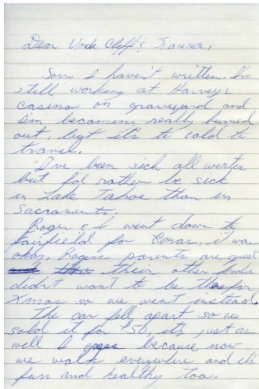 Dear Uncle Cliff & Donna,
Sorry I haven't written. I'm
still working at Harveys
casino on graveyard and
am becoming really burned
out, but it's to cold to
travel.
I've been sick all winter
but I'd rather be sick
in Lake Tahoe than in
Sacramento.
Roger & I went down to
Fairfield for Xmas, it was
okay, Rogers parents are great
their other kids
didn't want to be there for
Xmas so we went instead.
The car fell apart so we
sold it for $50, it's just as
well because now
we walk everywhere and it's
fun and healthy too.